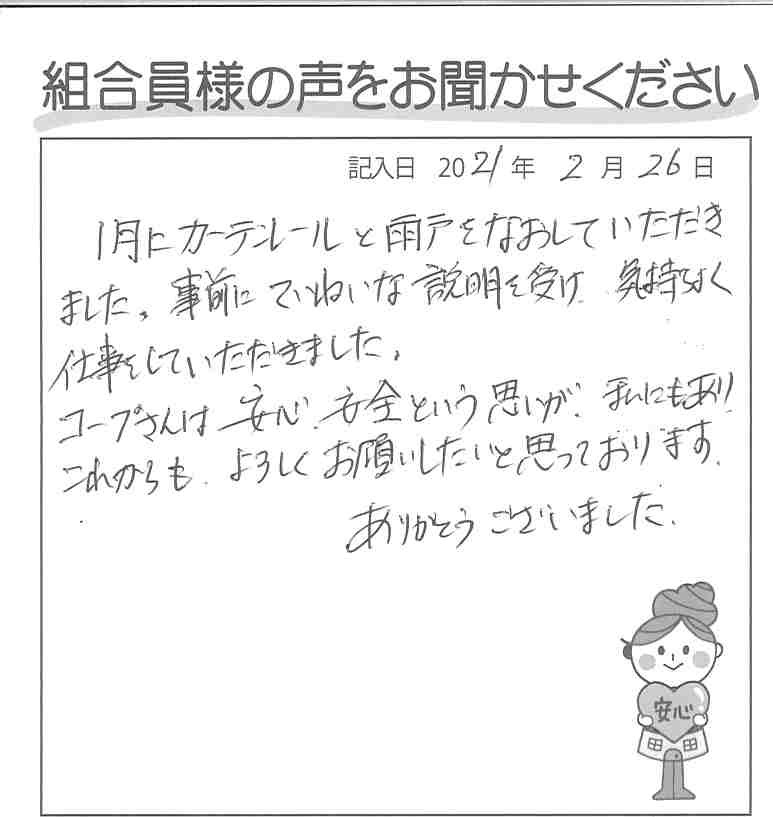 組合員様の声をお聞かせください
記入日 2021年 2月 26日
1月にカーテンレールと雨戸をなおしていただき
ました。事前にていねいな説明を受け 気持ちよく
仕事をしていただきました。
コープさんは 安心、安全という思いが、私にもあり
これからも、よろしくお願いしたいと思っております。
ありがとうございました。
安心